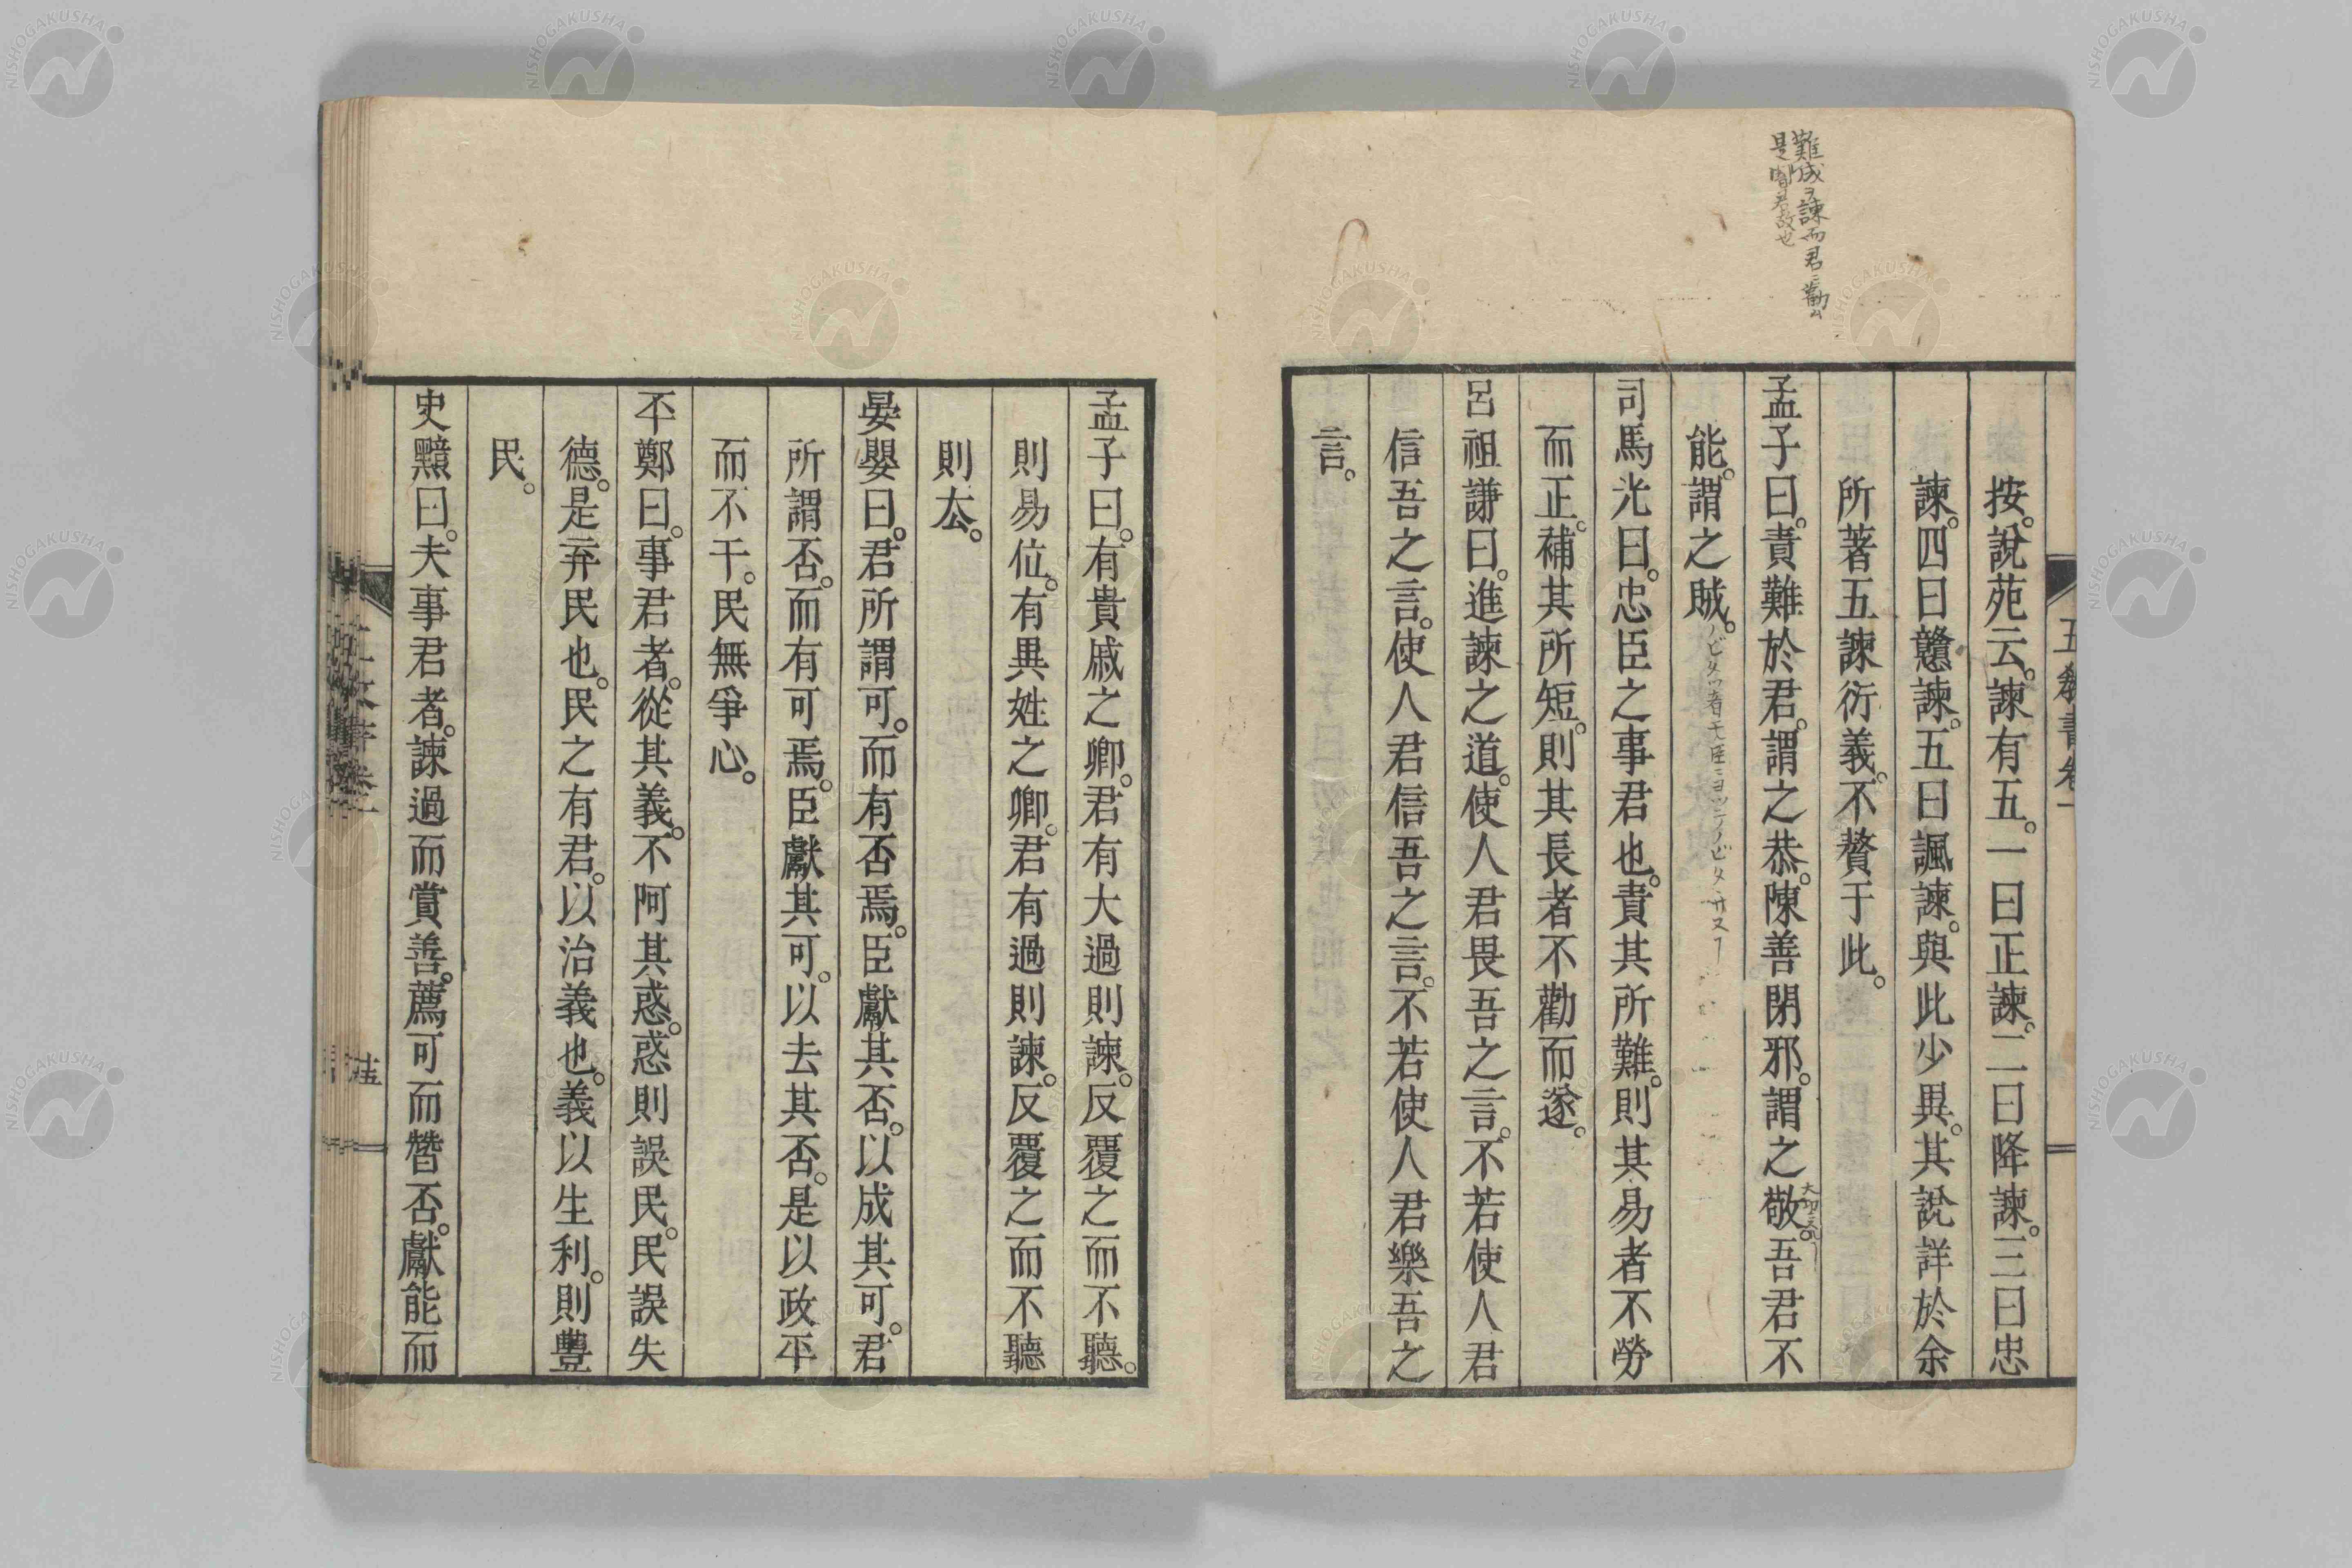 難成ヲ諫而君ニ勸ム
五教書卷一
按。說苑云。諫有五。一曰正諫。二曰降諫。三曰忠
諫。四曰戇諫。五曰諷諫。與此少異。其說詳於余
所著五諫衍義。不贅于此。
孟子曰。責難於君。謂之恭。陳善閉邪。謂之敬。吾君不
能。謂之賊。
司馬光曰。忠臣之事君也。責其所難。則其易者不勞
而正。補其所短。則其長者不勸而遂。
呂祖謙曰。進諫之道。使人君畏吾之言。不若使人君
信吾之言。使人君信吾之言。不若使人君樂吾之
言。
孟子曰。有貴戚之卿。君有大過則諫。反覆之而不聽。
則易位。有異姓之卿。君有過則諫。反覆之而不聽
則去。
晏嬰曰。君所謂可。而有否焉。臣獻其否。以成其可。君
所謂否。而有可焉。臣獻其可。以去其否。是以政平
而不干。民無爭心。
丕鄭曰。事君者。從其義。不阿其惑。惑則誤民。民誤失
德。是弃民也。民之有君。以治義也。義以生利。利則豐
民。
史黯曰。夫事君者。諫過而賞善。薦可而替否。獻能而
NISHOGAKUSHA